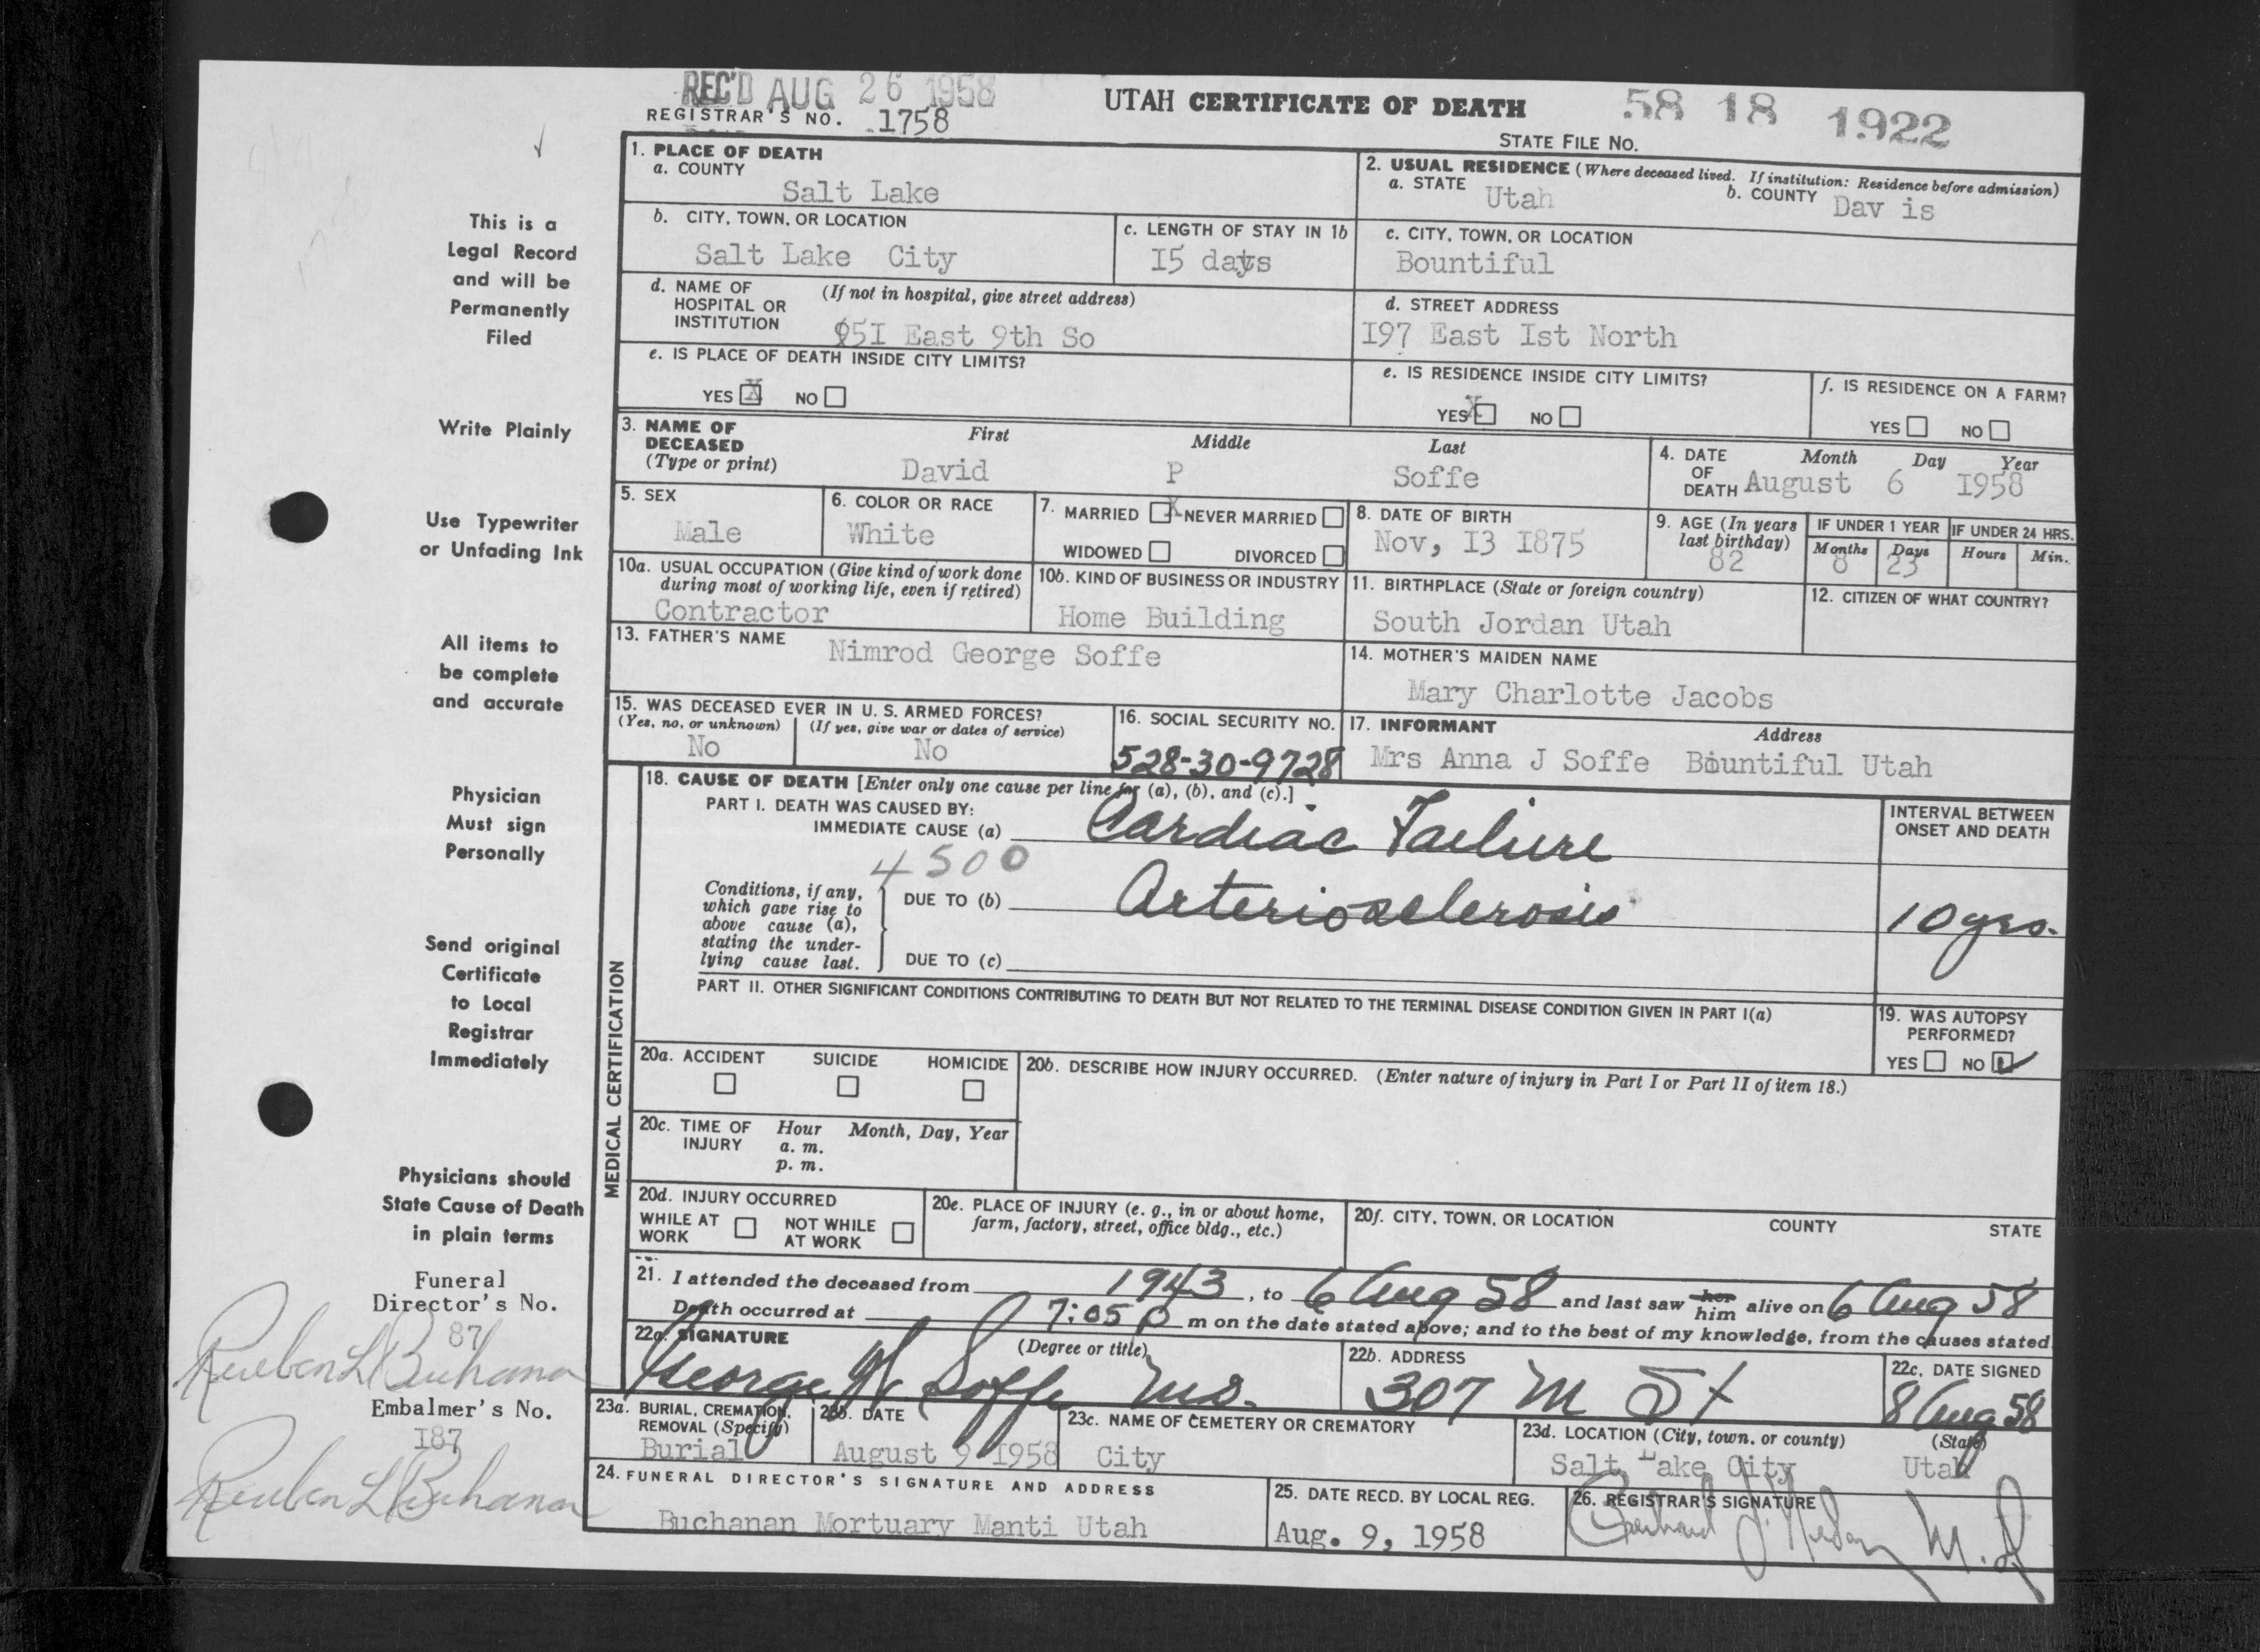 REC'D AUG 26 1958
REGISTRAR'S NO. 1758
UTAH CERTIFICATE OF DEATH
58 18 1922
STATE FILE No.
This is a
Legal Record
and will be
Permanently
Filed
Write Plainly
Use Typewriter
or Unfading Ink
All items to
be complete
and accurate
Physician
Must sign
Personally
Send original
Certificate
to Local
Registrar
Immediately
Physicians should
State Cause of Death
in plain terms
Funeral
Director's No.
87
Reuben L Buchanan
Embalmer's No.
I87
Reuben L Buchanan
1. PLACE OF DEATH
a. COUNTY
Salt Lake
2. USUAL RESIDENCE (Where deceased lived. If institution: Residence before admission)
a. STATE Utah b. COUNTY Dav is
b. CITY, TOWN, OR LOCATION
Salt Lake City
c. LENGTH OF STAY IN 1b
I5 days
c. CITY, TOWN, OR LOCATION
Bountiful
d. NAME OF (If not in hospital, give street address)
HOSPITAL OR
INSTITUTION
951 East 9th So
d. STREET ADDRESS
I97 East Ist North
e. IS PLACE OF DEATH INSIDE CITY LIMITS?
YES X NO
e. IS RESIDENCE INSIDE CITY LIMITS?
YES X NO
f. IS RESIDENCE ON A FARM?
YES NO
3. NAME OF
DECEASED
(Type or print)
First Middle Last
David P Soffe
4. DATE OF DEATH Month Day Year
August 6 I958
5. SEX
Male
6. COLOR OR RACE
White
7. MARRIED X NEVER MARRIED
WIDOWED DIVORCED
8. DATE OF BIRTH
Nov, I3 I875
9. AGE (In years
last birthday)
82
IF UNDER 1 YEAR
Months Days
8 23
IF UNDER 24 HRS.
Hours Min.
10a. USUAL OCCUPATION (Give kind of work done
during most of working life, even if retired)
Contractor
10b. KIND OF BUSINESS OR INDUSTRY
Home Building
11. BIRTHPLACE (State or foreign country)
South Jordan Utah
12. CITIZEN OF WHAT COUNTRY?
13. FATHER'S NAME
Nimrod George Soffe
14. MOTHER'S MAIDEN NAME
Mary Charlotte Jacobs
15. WAS DECEASED EVER IN U. S. ARMED FORCES?
(Yes, no, or unknown) (If yes, give war or dates of service)
No No
16. SOCIAL SECURITY NO.
528-30-9728
17. INFORMANT Address
Mrs Anna J Soffe Bountiful Utah
MEDICAL CERTIFICATION
18. CAUSE OF DEATH [Enter only one cause per line for (a), (b), and (c).]
PART I. DEATH WAS CAUSED BY:
IMMEDIATE CAUSE (a) Cardiac Failure
INTERVAL BETWEEN
ONSET AND DEATH
4500
Conditions, if any,
which gave rise to
above cause (a),
stating the under-
lying cause last.
DUE TO (b) Arteriosclerosis 10 yrs.
DUE TO (c)
PART II. OTHER SIGNIFICANT CONDITIONS CONTRIBUTING TO DEATH BUT NOT RELATED TO THE TERMINAL DISEASE CONDITION GIVEN IN PART I(a)
19. WAS AUTOPSY
PERFORMED?
YES NO ✓
20a. ACCIDENT SUICIDE HOMICIDE
20b. DESCRIBE HOW INJURY OCCURRED. (Enter nature of injury in Part I or Part II of item 18.)
20c. TIME OF INJURY Hour Month, Day, Year
a. m.
p. m.
20d. INJURY OCCURRED
WHILE AT WORK NOT WHILE AT WORK
20e. PLACE OF INJURY (e. g., in or about home,
farm, factory, street, office bldg., etc.)
20f. CITY, TOWN, OR LOCATION COUNTY STATE
21. I attended the deceased from 1943, to 6 Aug 58 and last saw her him alive on 6 Aug 58
Death occurred at 7:05 p m on the date stated above; and to the best of my knowledge, from the causes stated.
22a. SIGNATURE (Degree or title)
George W Soffe M.D.
22b. ADDRESS
307 M St
22c. DATE SIGNED
8 Aug 58
23a. BURIAL, CREMATION,
REMOVAL (Specify)
Burial
23b. DATE
August 9 1958
23c. NAME OF CEMETERY OR CREMATORY
City
23d. LOCATION (City, town, or county) (State)
Salt Lake City Utah
24. FUNERAL DIRECTOR'S SIGNATURE AND ADDRESS
Buchanan Mortuary Manti Utah
25. DATE RECD. BY LOCAL REG.
Aug. 9, 1958
26. REGISTRAR'S SIGNATURE
M.D.